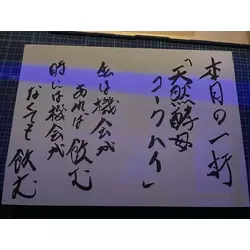 本日の一打
「天然酵母
コークハイ」
私は機会が
あれば飲む
時には機会が
なくても飲む